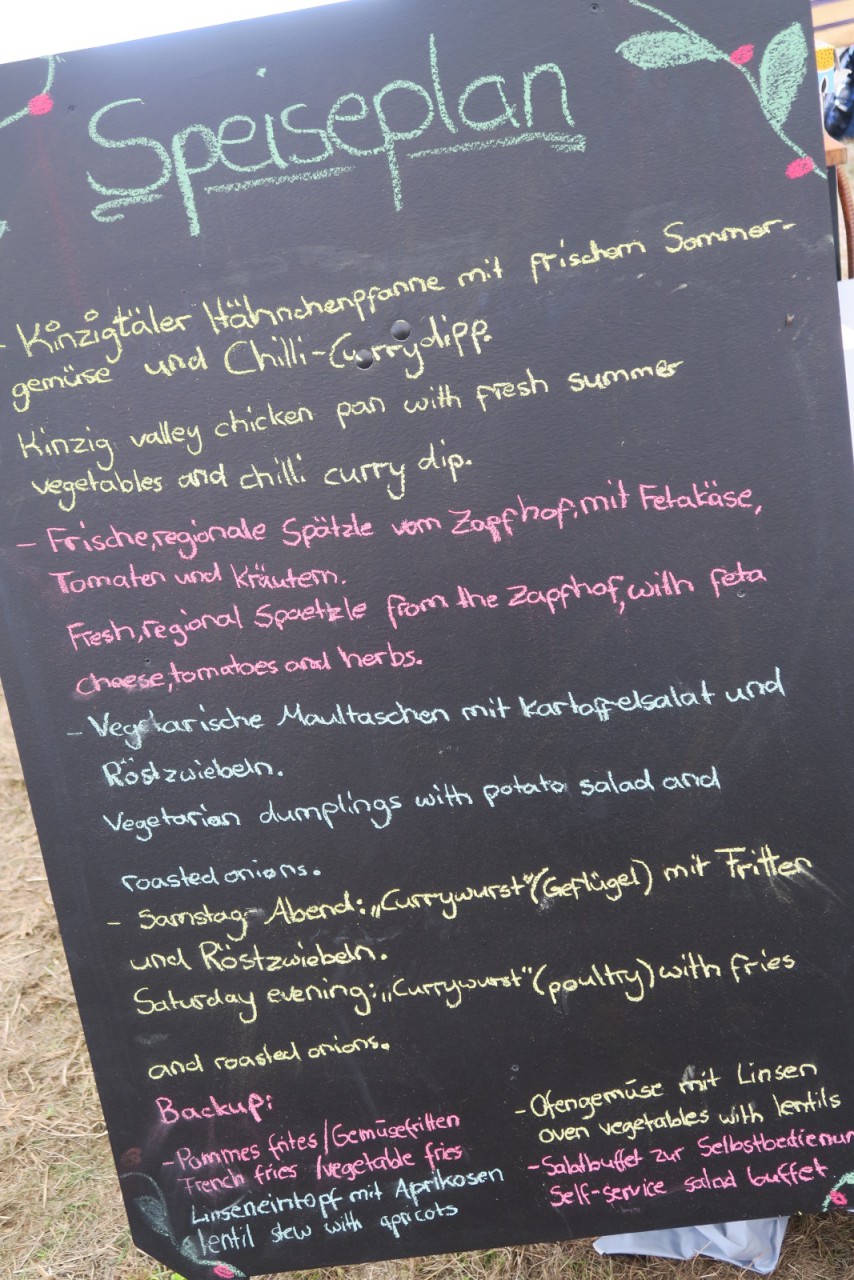 Speiseplan
- Kinzigtäler Hähnchenpfanne mit frischem Sommer-
gemüse und Chilli-Currydipp.
Kinzig valley chicken pan with fresh summer
vegetables and chilli curry dip.
- Frische, regionale Spätzle vom Zapfhof, mit Fetakäse,
Tomaten und Kräutern.
Fresh, regional Spaetzle from the Zapfhof, with feta
cheese, tomatoes and herbs.
- Vegetarische Maultaschen mit Kartoffelsalat und
Röstzwiebeln.
Vegetarian dumplings with potato salad and
roasted onions.
- Samstag Abend: „Currywurst" (Geflügel) mit Fritten
und Röstzwiebeln.
Saturday evening: „Currywurst" (poultry) with fries
and roasted onions.
Backup:
- Pommes frites / Gemüsefritten
French fries / vegetable fries
Linseneintopf mit Aprikosen
lentil stew with apricots
- Ofengemüse mit Linsen
oven vegetables with lentils
- Salatbuffet zur Selbstbedienun
Self-service salad buffet